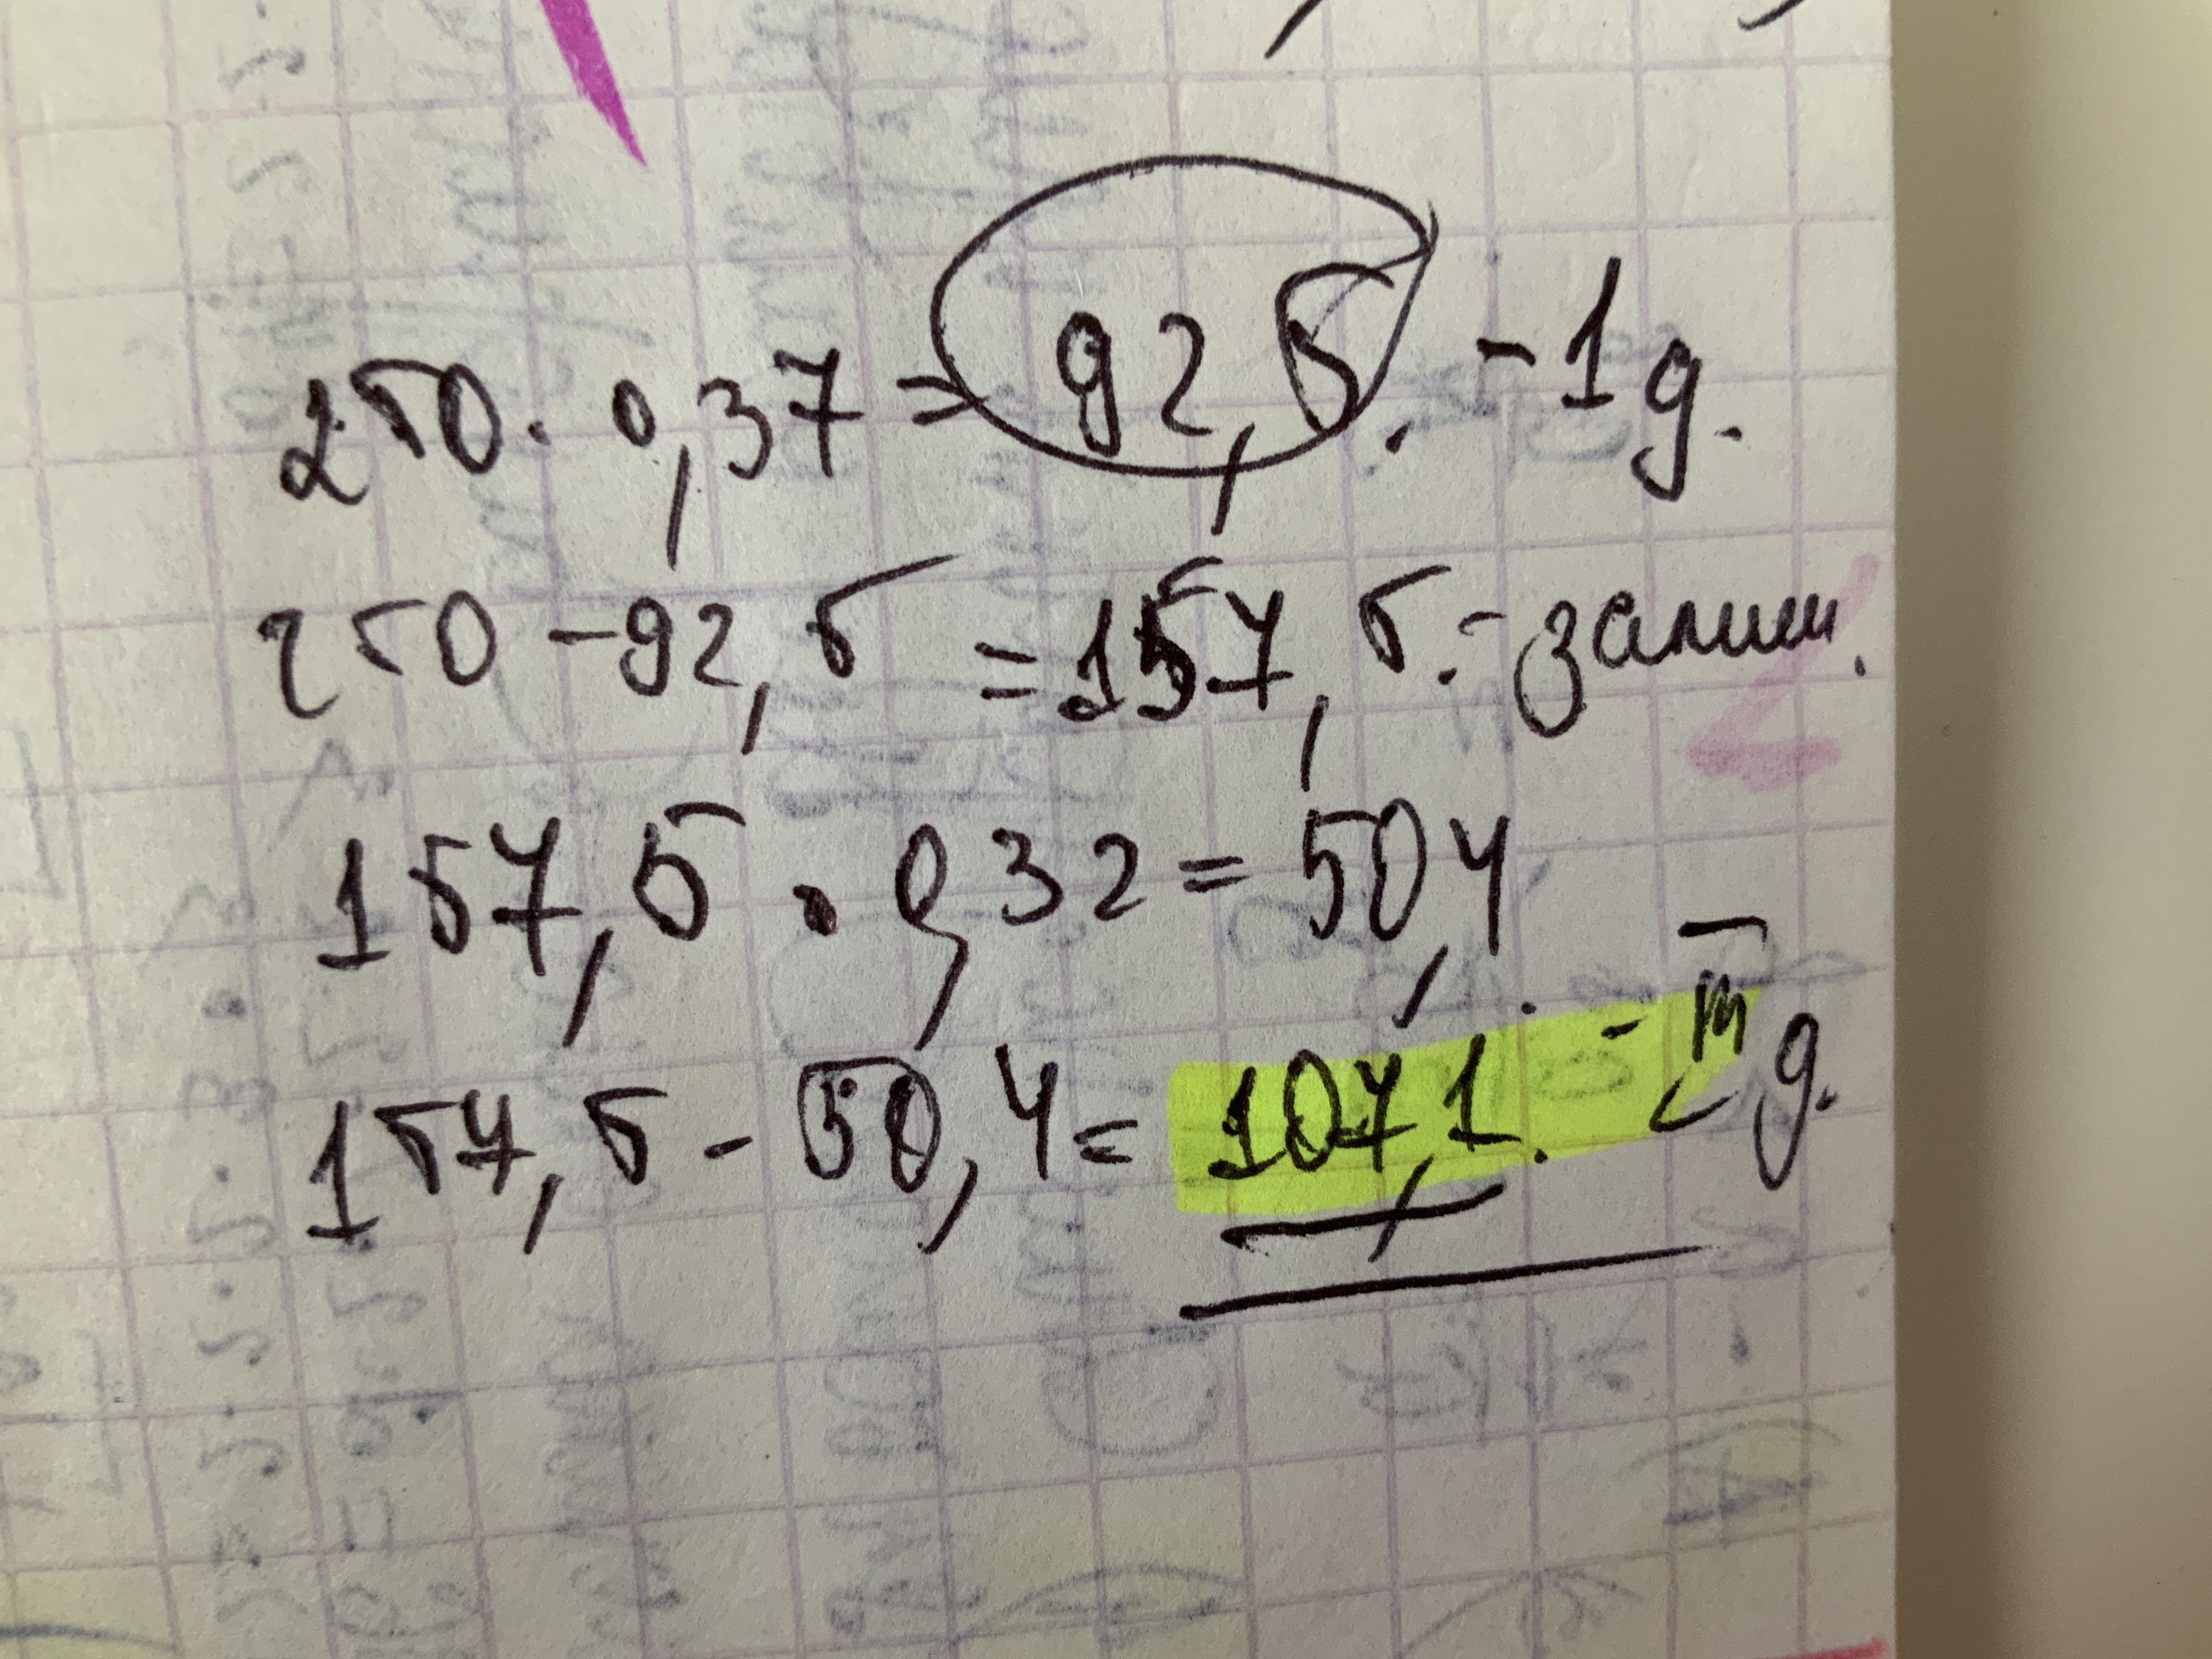 250 · 0,37 = 92,5. - 1 д.
250 - 92,5 = 157,5. - залиш.
157,5 · 0,32 = 50,4.
157,5 - 50,4 = 107,1. - III д.